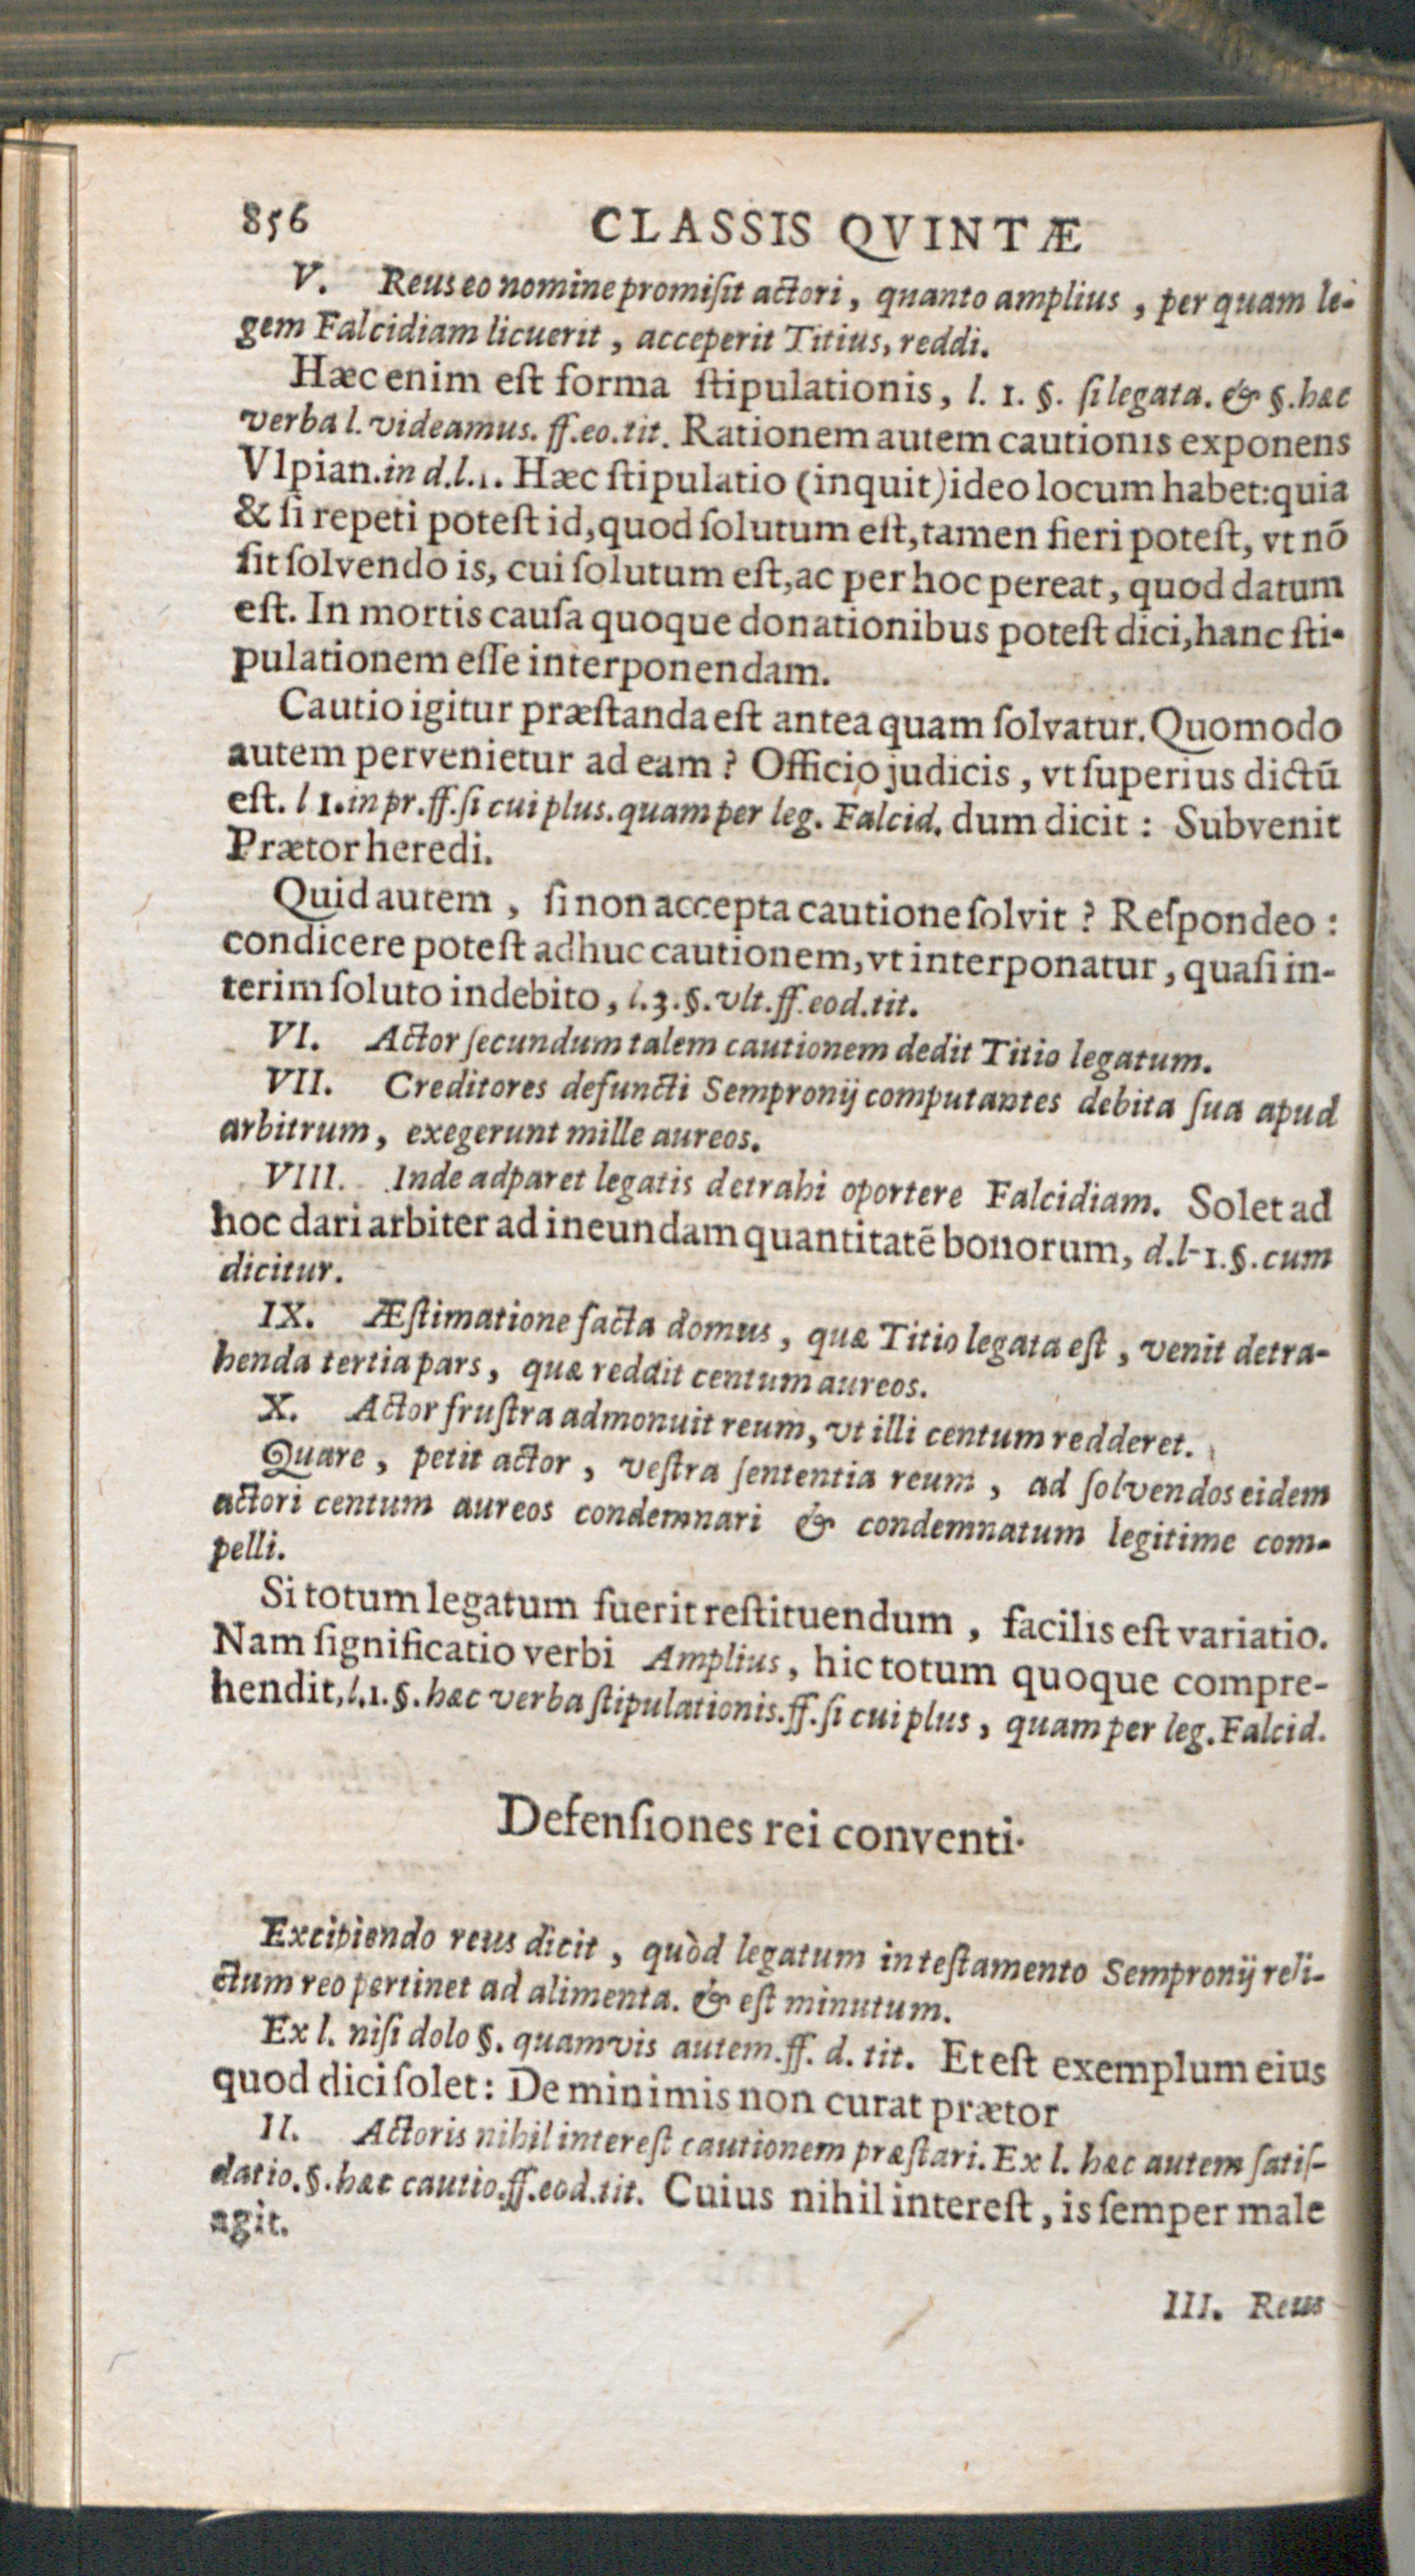 856 CLASSIS QVINTÆ
V. Reus eo nomine promiſit actori, quanto amplius, per quam le-
gem Falcidiam licuerit, acceperit Titius, reddi.
Hæc enim eſt forma ſtipulationis, l. 1. §. ſi legata. & §. hæc
verba l. videamus. ff. eo. tit. Rationem autem cautionis exponens
Vlpian. in d. l. 1. Hæc ſtipulatio (inquit) ideo locum habet: quia
& ſi repeti poteſt id, quod ſolutum eſt, tamen fieri poteſt, vt nō
ſit ſolvendo is, cui ſolutum eſt, ac per hoc pereat, quod datum
eſt. In mortis cauſa quoque donationibus poteſt dici, hanc ſti-
pulationem eſſe interponendam.
Cautio igitur præſtanda eſt antea quam ſolvatur. Quomodo
autem pervenietur ad eam? Officio judicis, vt ſuperius dictū
eſt. l 1. in pr. ff. ſi cui plus. quam per leg. Falcid. dum dicit: Subvenit
Prætor heredi.
Quid autem, ſi non accepta cautione ſolvit? Reſpondeo:
condicere poteſt adhuc cautionem, vt interponatur, quaſi in-
terim ſoluto indebito, l. 3. §. vlt. ff. eod. tit.
VI. Actor ſecundum talem cautionem dedit Titio legatum.
VII. Creditores defuncti Sempronij computantes debita ſua apud
arbitrum, exegerunt mille aureos.
VIII. Inde adparet legatis detrahi oportere Falcidiam. Solet ad
hoc dari arbiter ad ineundam quantitatē bonorum, d. l-1. §. cum
dicitur.
IX. Æſtimatione facta domus, quæ Titio legata eſt, venit detra-
henda tertia pars, quæ reddit centum aureos.
X. Actor fruſtra admonuit reum, vt illi centum redderet.
Quare, petit actor, veſtra ſententia reum, ad ſolvendos eidem
actori centum aureos condemnari & condemnatum legitime com-
pelli.
Si totum legatum fuerit reſtituendum, facilis eſt variatio.
Nam ſignificatio verbi Amplius, hic totum quoque compre-
hendit, l. 1. §. hæc verba ſtipulationis. ff. ſi cui plus, quam per leg. Falcid.
Defenſiones rei conventi.
Excipiendo reus dicit, quòd legatum in teſtamento Sempronij reli-
ctum reo pertinet ad alimenta. & eſt minutum.
Ex l. niſi dolo §. quamvis autem. ff. d. tit. Et eſt exemplum eius
quod dici ſolet: De minimis non curat prætor
II. Actoris nihil intereſt cautionem præſtari. Ex l. hæc autem ſatiſ-
datio. §. hæc cautio. ff. eod. tit. Cuius nihil intereſt, is ſemper male
agit.
III. Reus